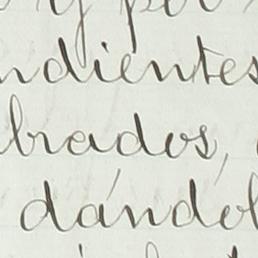 y por
ndientes
brados,
dándol